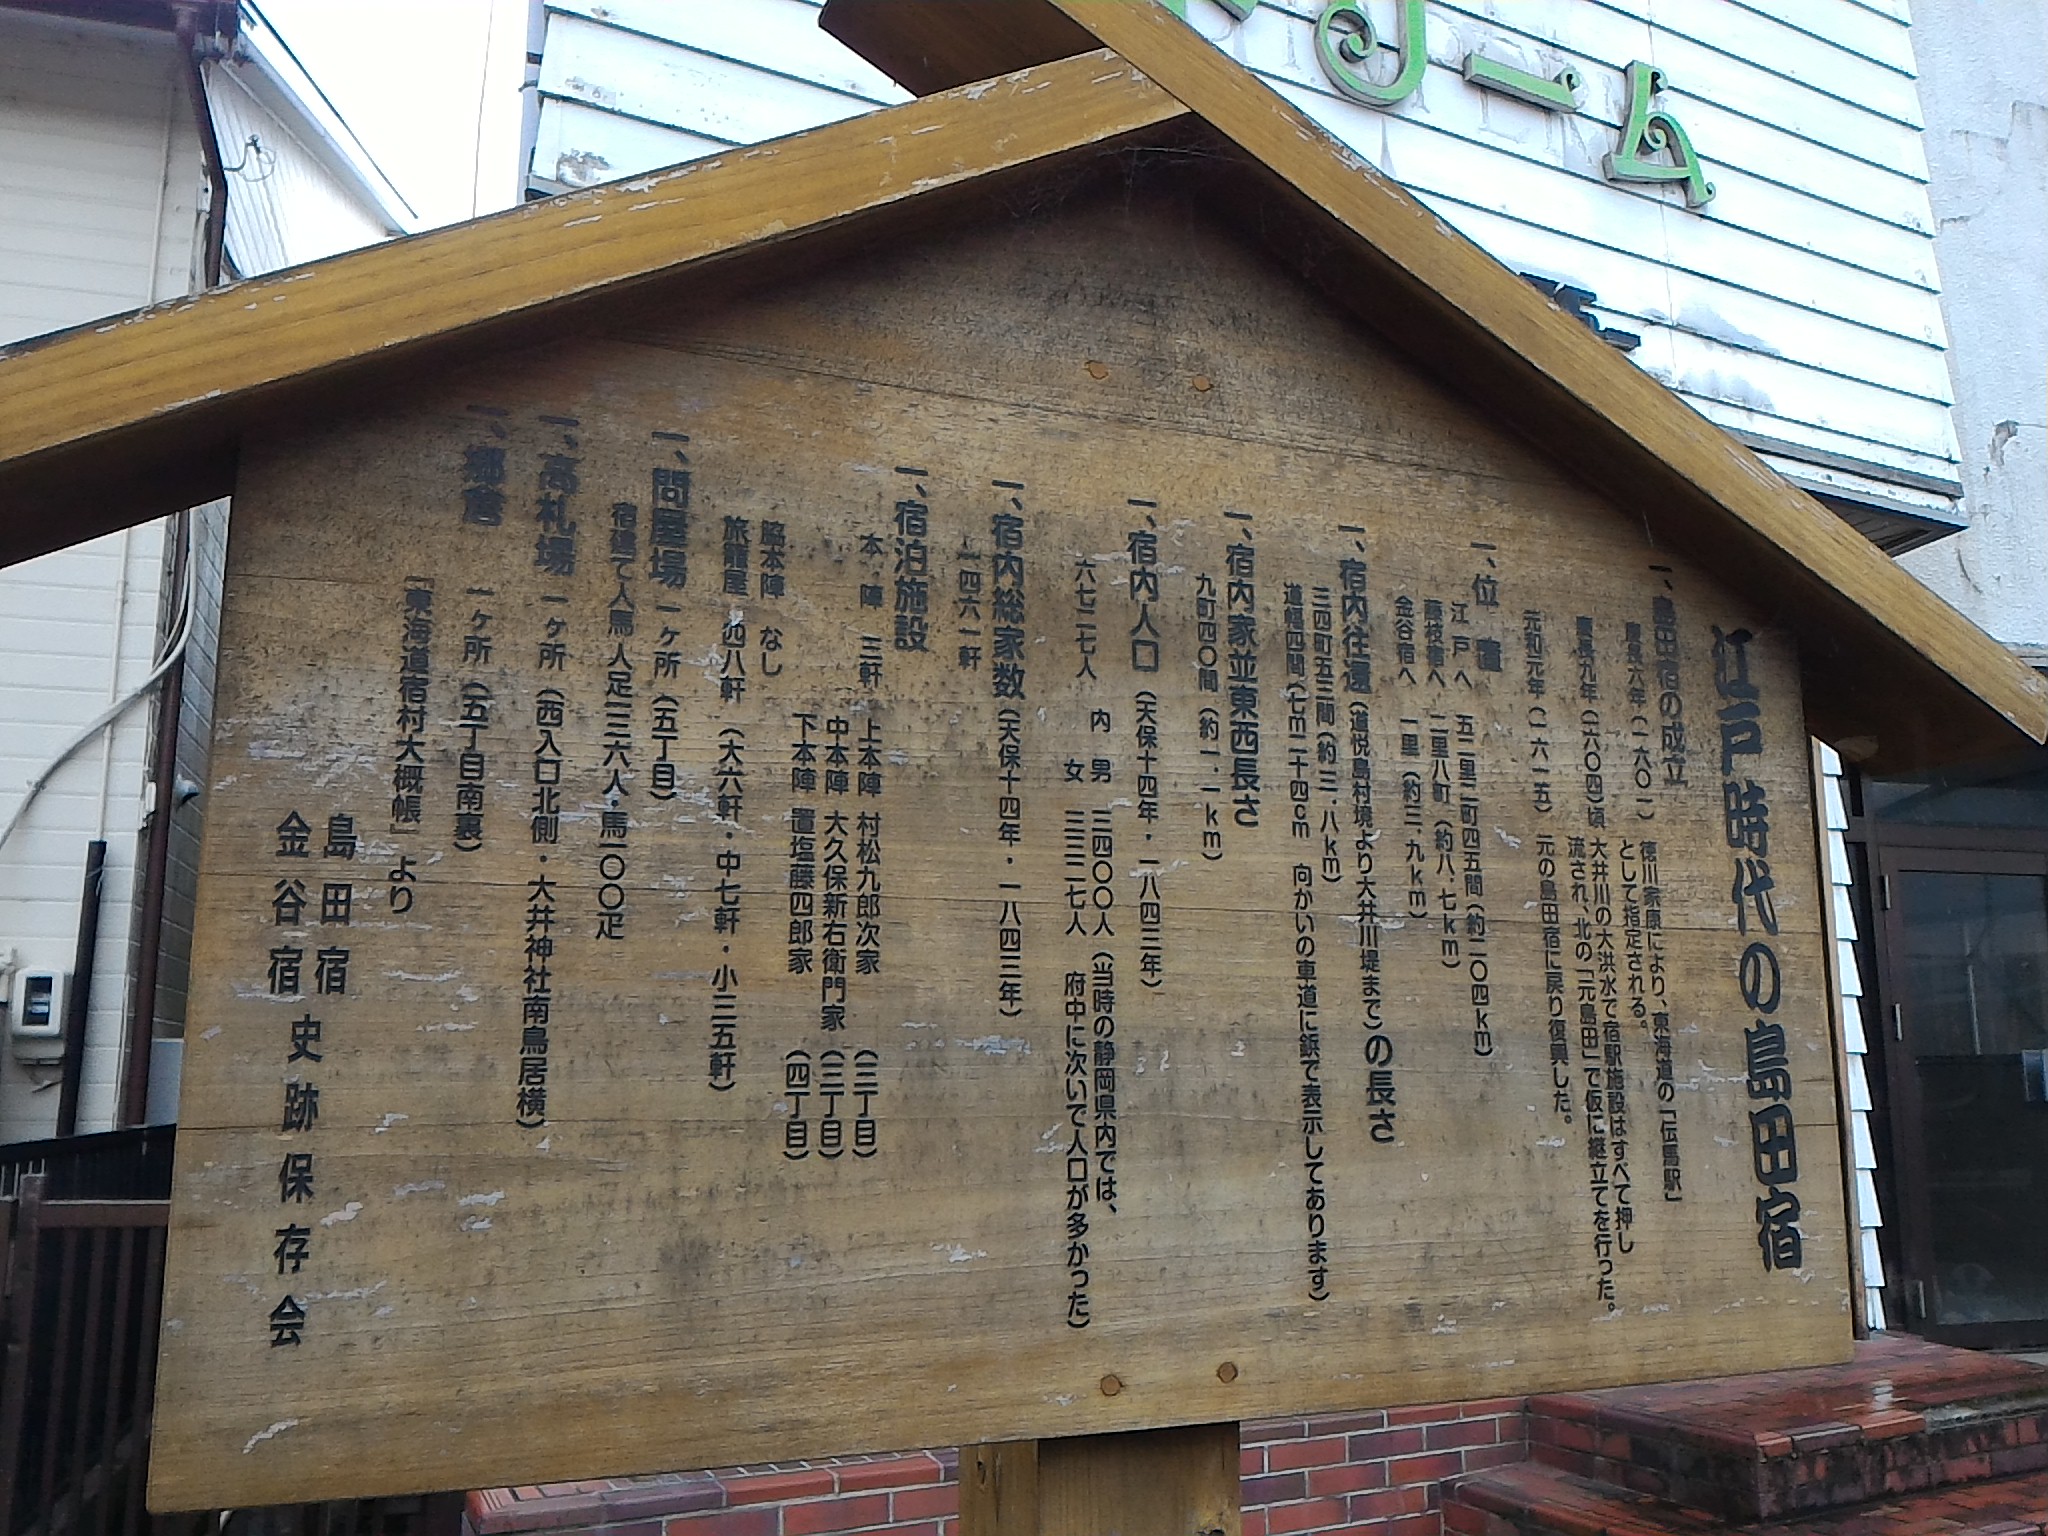 江戸時代の島田宿
一、島田宿の成立
慶長六年（一六〇一）　徳川家康により、東海道の「伝馬駅」
として指定される。
慶長九年（一六〇四）頃　大井川の大洪水で宿駅施設はすべて押し
流され、北の「元島田」で仮に継立てを行った。
元和元年（一六一五）　元の島田宿に戻り復興した。
一、位　置
江戸へ　五二里二町四五間（約二〇四km）
藤枝宿へ　二里八町（約八.七km）
金谷宿へ　一里（約三.九km）
一、宿内往還（道悦島村境より大井川堤まで）の長さ
三四町五三間（約三.八km）
道幅四間（七m二十四cm　向かいの車道に鋲で表示してあります）
一、宿内家並東西長さ
九町四〇間（約一.一km）
一、宿内人口（天保十四年・一八四三年）
六七二七人　内　男　三四〇〇人（当時の静岡県内では、
女　三三二七人　府中に次いで人口が多かった）
一、宿内総家数（天保十四年・一八四三年）
一四六一軒
一、宿泊施設
本　陣　三軒　上本陣　村松九郎次家　（三丁目）
中本陣　大久保新右衛門家　（三丁目）
下本陣　置塩藤四郎家　（四丁目）
脇本陣　なし
旅籠屋　四八軒　（大六軒・中七軒・小三五軒）
一、問屋場　一ヶ所（五丁目）
宿建て人馬　人足一三六人・馬一〇〇疋
一、高札場　一ヶ所　（西入口北側・大井神社南鳥居横）
一、郷倉　一ヶ所　（五丁目南裏）
「東海道宿村大概帳」より
島田宿
金谷宿　史跡保存会
リーム